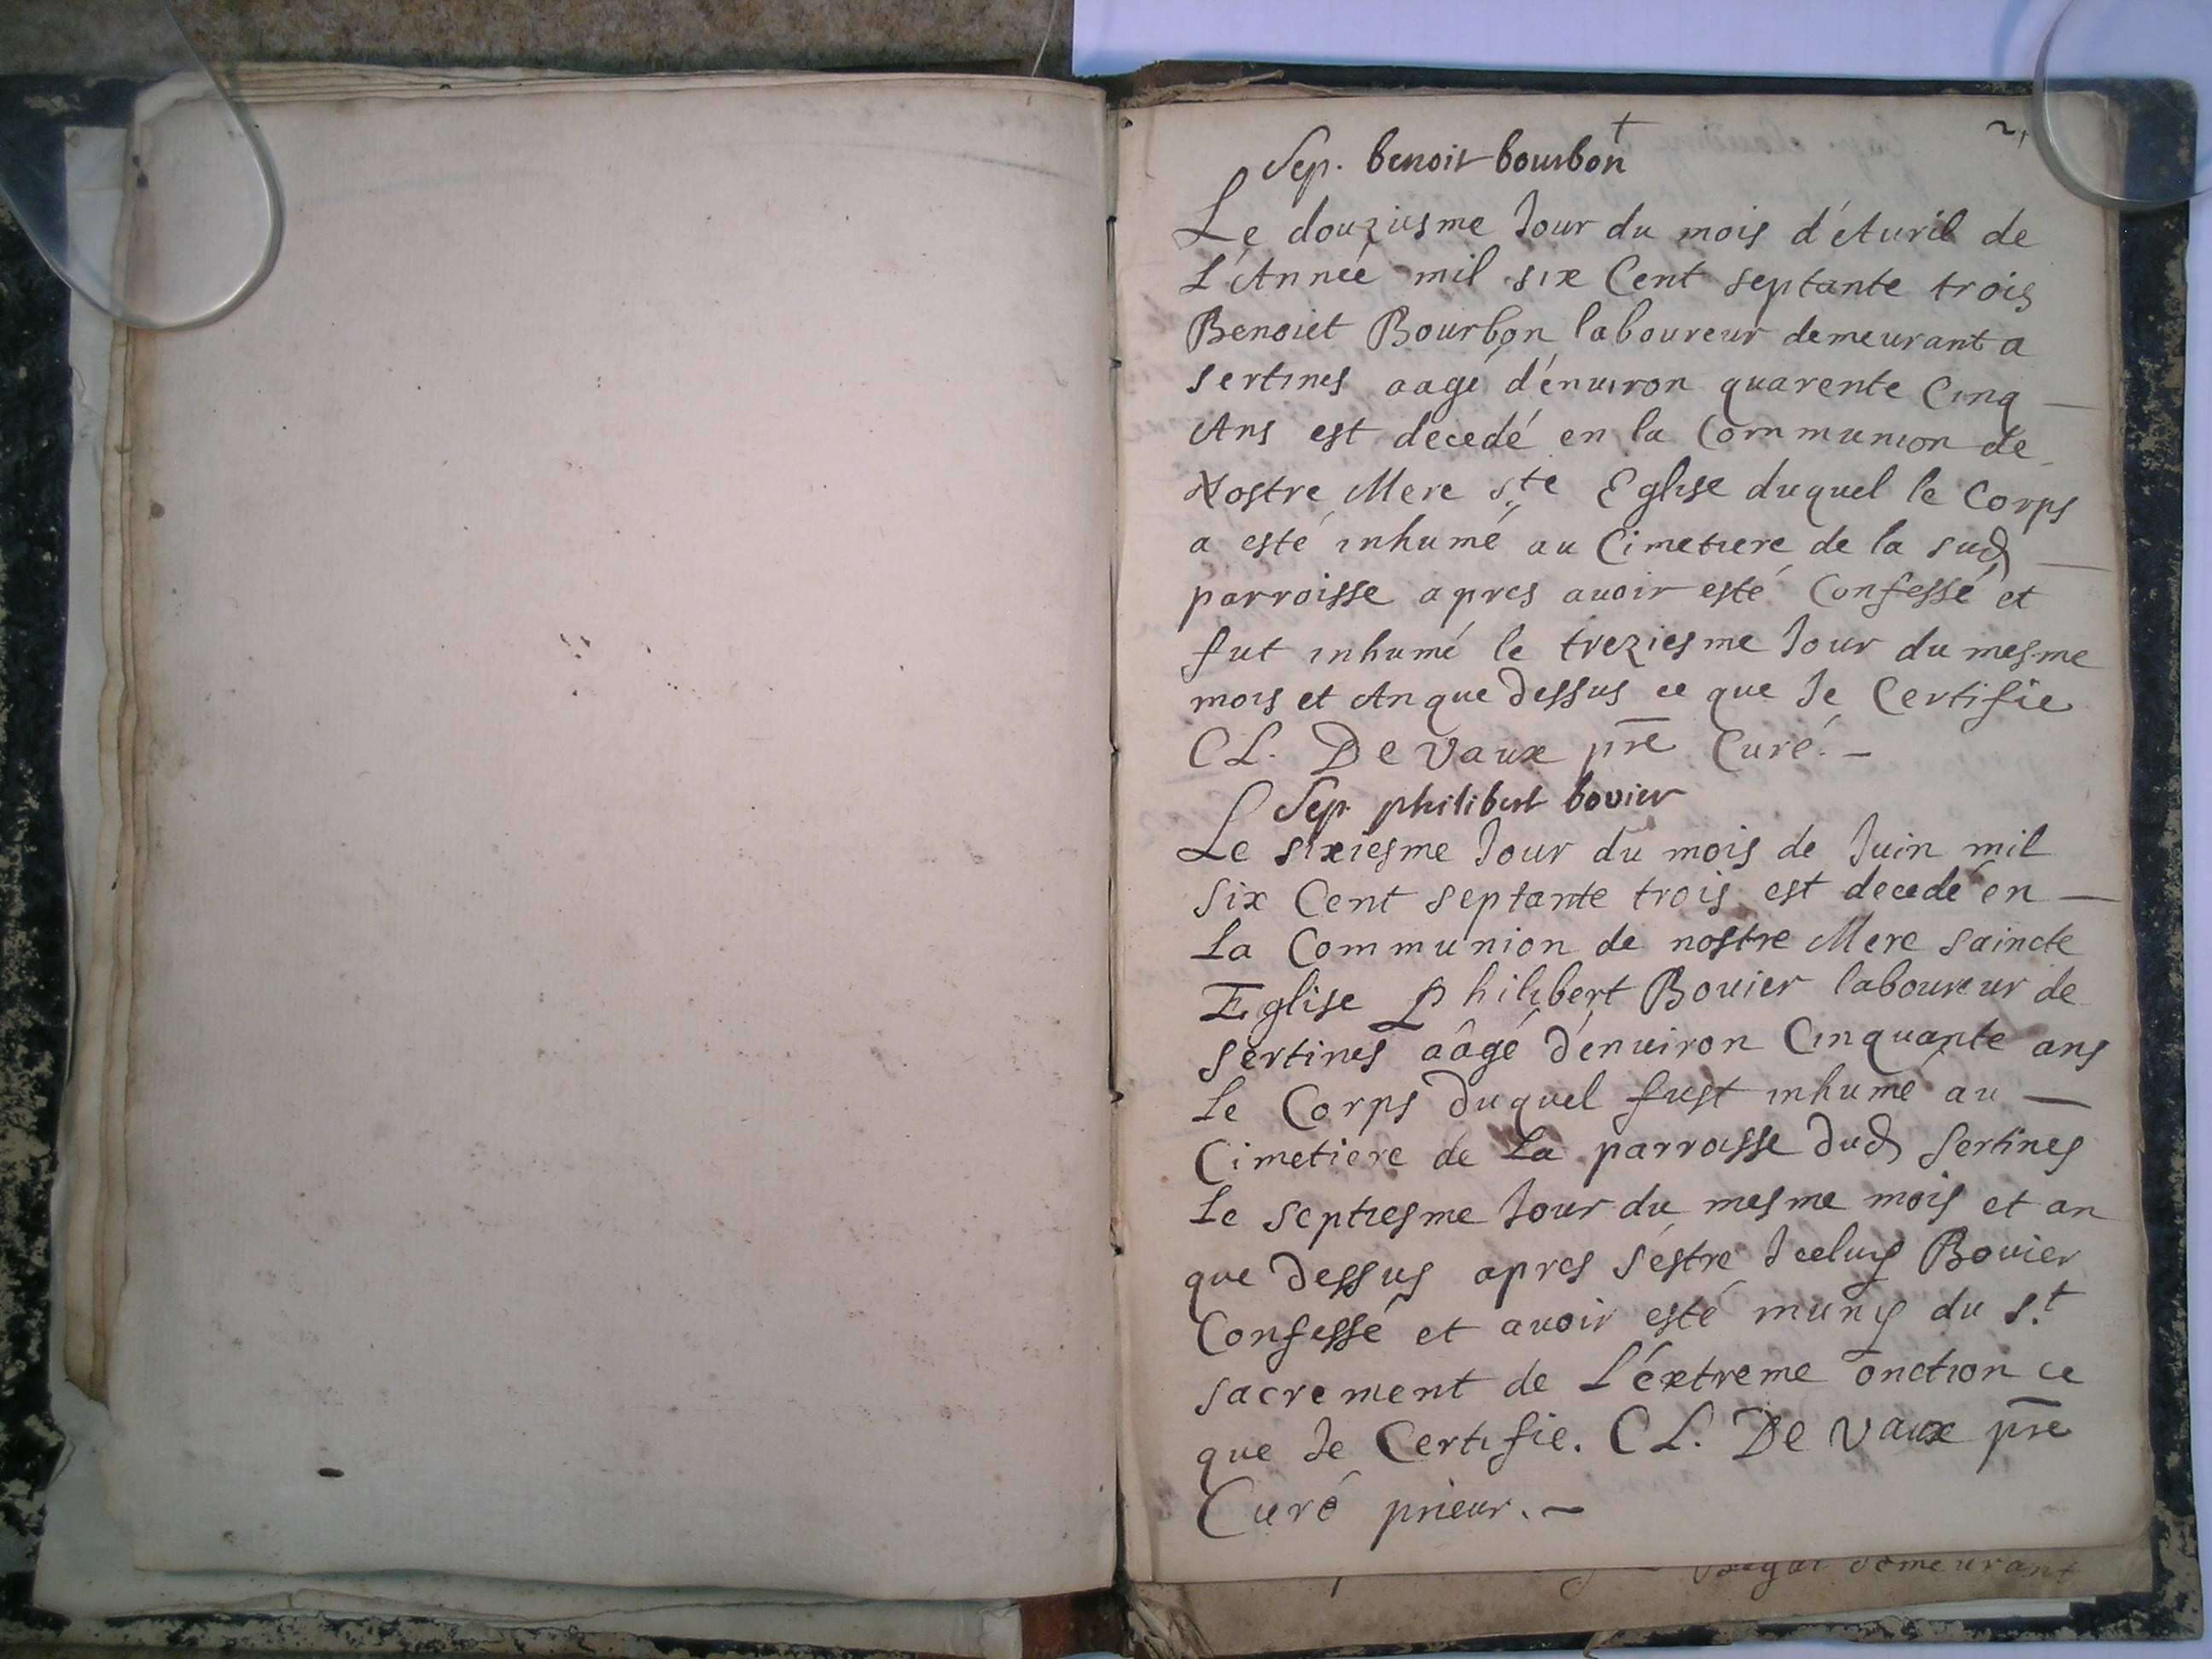 +
2,
Sep. benoit bourbon
Le douziesme Jour du mois d'Auril de
L'Année mil six Cent septante trois
Benoiet Bourbon laboureur demeurant a
sertines aagé d'enuiron quarente Cinq —
Ans est decedé en la Communion de
Nostre Mere ste Eglise duquel le Corps
a esté inhumé au Cimetiere de la sud —
parroisse apres auoir esté Confessé et
fut inhumé le treziesme Jour du mesme
mois et An que dessus ce que Je Certifie
CL. De Vaux pre Curé. —
Sep. philibert bovier
Le sixiesme Jour du mois de Juin mil
six Cent septante trois est decedé en —
La Communion de nostre Mere saincte
Eglise Philibert Bouier laboureur de
sertines aâgé d'enuiron Cinquante ans
Le Corps duquel fust inhumé au —
Cimetiere de La parroisse dud sertines
Le septiesme Jour du mesme mois et an
que dessus apres s'estre Jceluy Bouier
Confessé et auoir esté muny du st
sacrement de L'éxtreme onction ce
que Je Certifie. CL. De Vaux pre
Curé prieur. —
demeurant